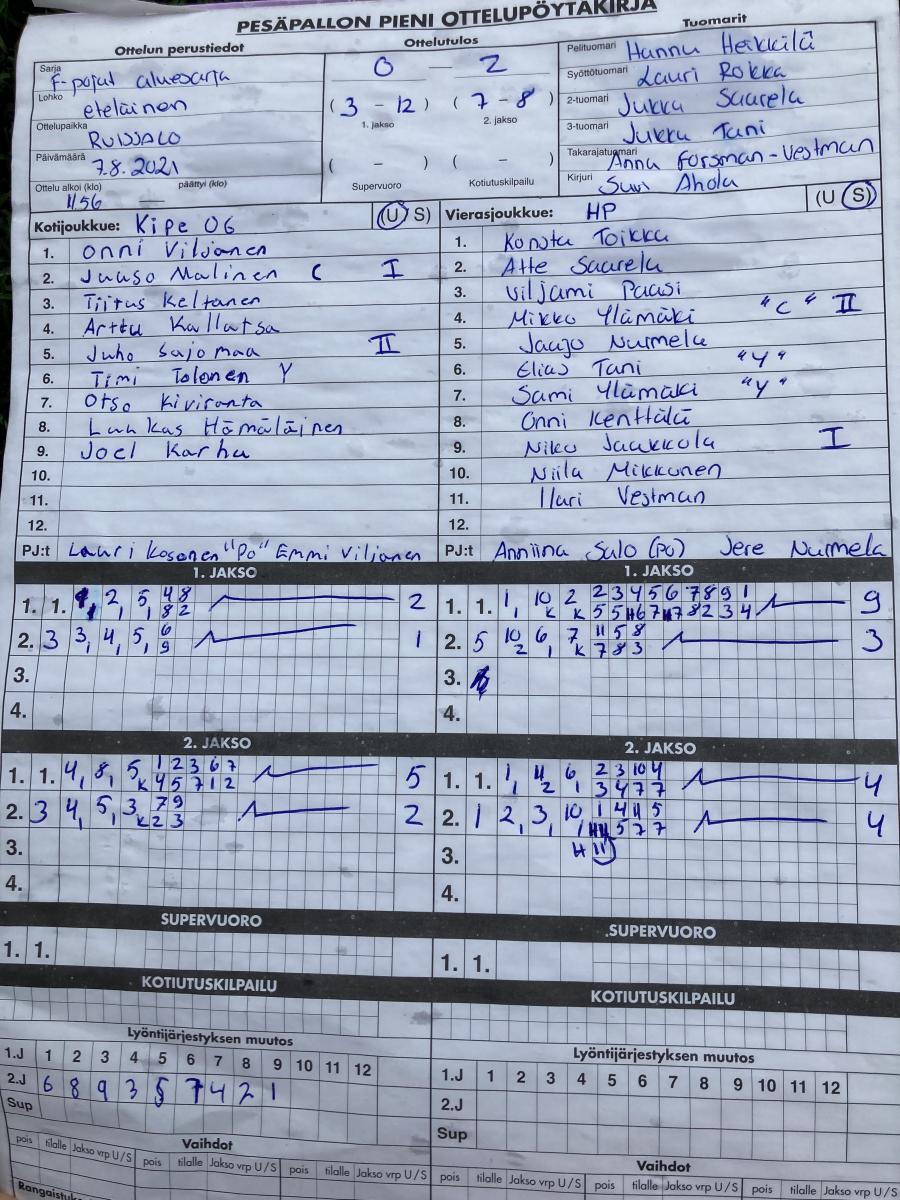 PESÄPALLON PIENI OTTELUPÖYTÄKIRJA
Ottelun perustiedot
Ottelutulos
Tuomarit
Sarja F-pojat aluesarja
Lohko eteläinen
Ottelupaikka RUISSALO
Päivämäärä 7.8.2021
Ottelu alkoi (klo) 11.56 päättyi (klo) —
0 — 2
( 3 - 12 ) ( 7 - 8 )
1. jakso 2. jakso
( - ) ( - )
Supervuoro Kotiutuskilpailu
Pelituomari Hannu Heikkilä
Syöttötuomari Lauri Rokka
2-tuomari Jukka Saarela
3-tuomari Jukka Tani
Takarajatuomari Anna Forsman-Vestman
Kirjuri Suvi Ahola
Kotijoukkue: Kipe 06 (U S)
1. Onni Viljanen
2. Juuso Malinen C I
3. Tiitus Keltanen
4. Arttu Kallatsa
5. Juho Sajomaa II
6. Timi Tolonen Y
7. Otso Kiviranta
8. Luukas Hämäläinen
9. Joel Karhu
10.
11.
12.
PJ:t Lauri Kosonen "Po" Emmi Viljanen
Vierasjoukkue: HP (U S)
1. Konsta Toikka
2. Atte Saarela
3. Viljami Paasi
4. Mikko Ylämäki "C" II
5. Jaajo Nurmela
6. Elias Tani "Y"
7. Sami Ylämäki "Y"
8. Onni Kenttälä
9. Niko Jaakkola I
10. Niila Mikkonen
11. Ilari Vestman
12.
PJ:t Anniina Salo (po) Jere Nurmela
1. JAKSO
1. 1. 1, 2, 5, 4 8 2
8 2
2. 3 3, 4, 5, 6 1
9
3.
4.
1. JAKSO
1. 1. 1, 10 2 2 3 4 5 6 7 8 9 1 9
2. 5 10 6, 7 11 5 8 3
2 K 7 8 3
3.
4.
2. JAKSO
1. 1. 4, 8, 5 1 2 3 6 7 5
K 4 5 7 1 2
2. 3 4, 5, 3 7 9 2
K 2 3
3.
4.
2. JAKSO
1. 1. 1, 4 6, 2 3 10 4 4
3 4 7 7
2. 1 2, 3, 10, 1 4 11 5 4
5 7 7
3.
4.
SUPERVUORO
1. 1.
SUPERVUORO
1. 1.
KOTIUTUSKILPAILU
KOTIUTUSKILPAILU
Lyöntijärjestyksen muutos
1.J 1 2 3 4 5 6 7 8 9 10 11 12
2.J 6 8 9 3 5 7 4 2 1
Sup
Lyöntijärjestyksen muutos
1.J 1 2 3 4 5 6 7 8 9 10 11 12
2.J
Sup
Vaihdot
pois tilalle Jakso vrp U/S pois tilalle Jakso vrp U/S pois tilalle Jakso vrp U/S
Vaihdot
pois tilalle Jakso vrp U/S pois tilalle Jakso vrp U/S pois tilalle Jakso vrp U/S